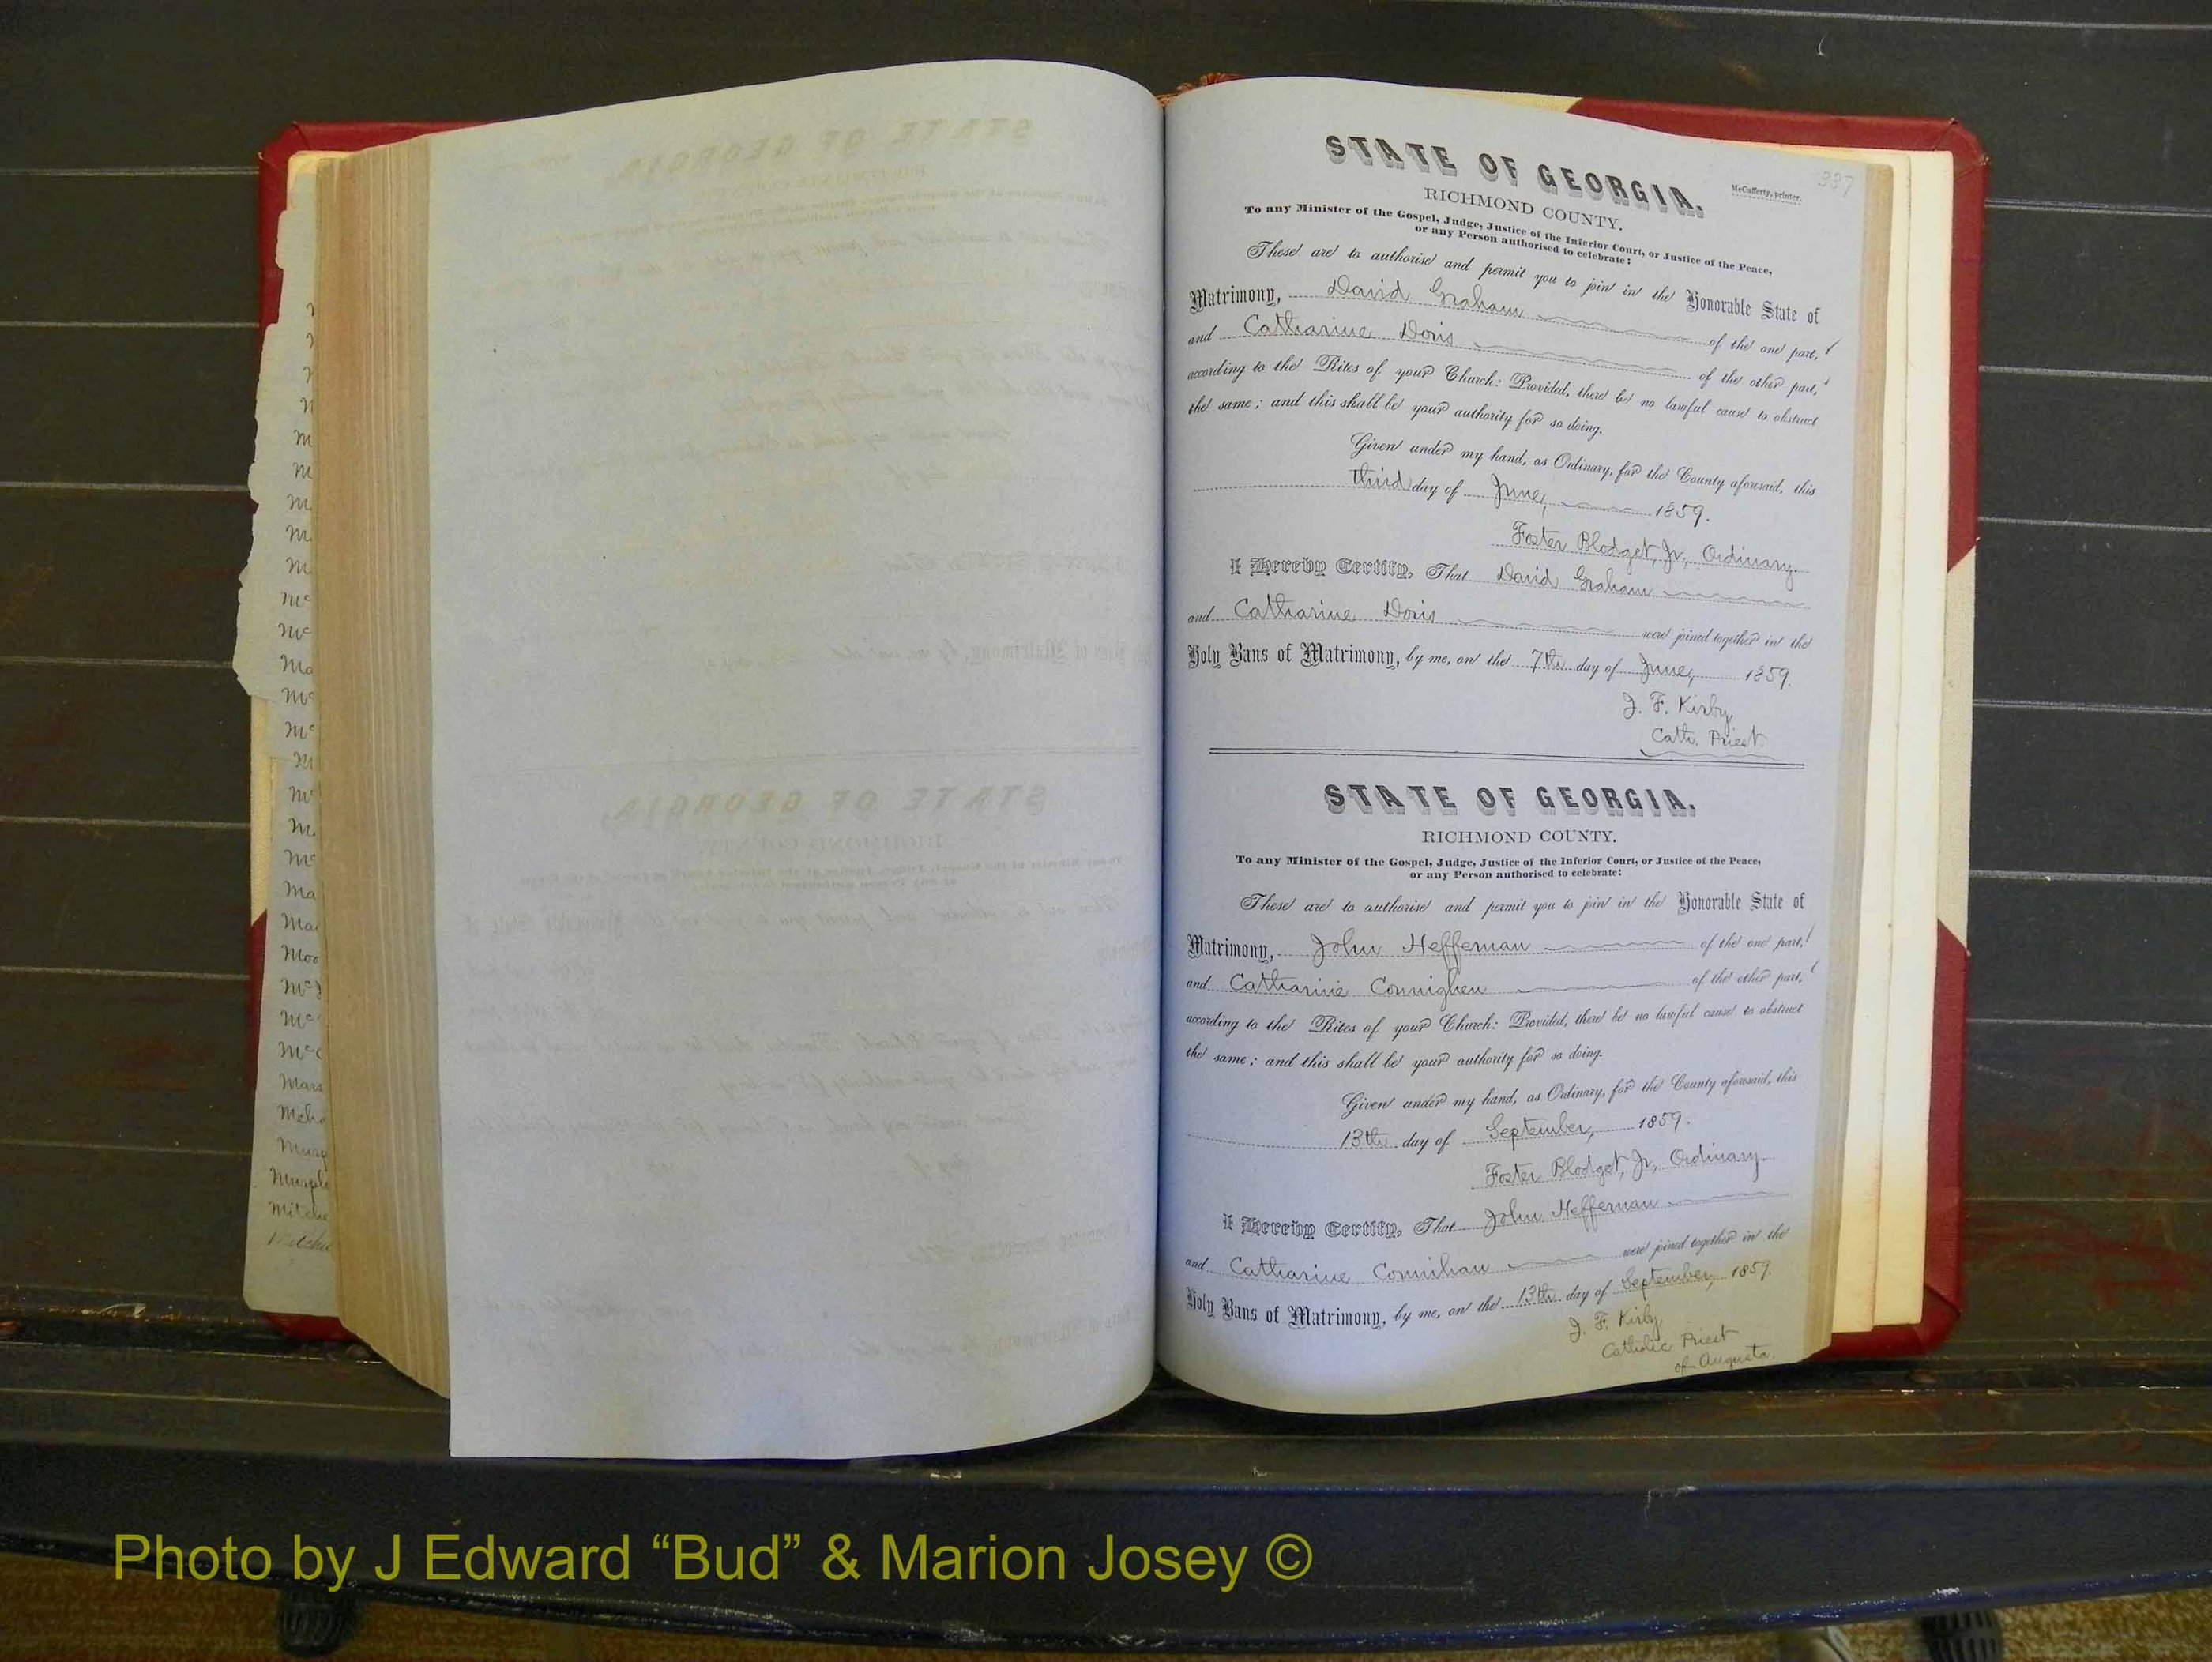 337
STATE OF GEORGIA.
McCafferty, printer.
RICHMOND COUNTY.
To any Minister of the Gospel, Judge, Justice of the Inferior Court, or Justice of the Peace,
or any Person authorised to celebrate:
These are to authorise and permit you to join in the Honorable State of
Matrimony, David Graham of the one part,
and Catharine Doris of the other part,
according to the Rites of your Church: Provided, there be no lawful cause to obstruct
the same; and this shall be your authority for so doing.
Given under my hand, as Ordinary, for the County aforesaid, this
third day of June, 1859.
Foster Blodget, Jr., Ordinary.
I Hereby Certify, That David Graham
and Catharine Doris were joined together in the
Holy Bans of Matrimony, by me, on the 7th day of June, 1859.
J. F. Kirby
Cath. Priest.
STATE OF GEORGIA.
RICHMOND COUNTY.
To any Minister of the Gospel, Judge, Justice of the Inferior Court, or Justice of the Peace,
or any Person authorised to celebrate:
These are to authorise and permit you to join in the Honorable State of
Matrimony, John Heffernan of the one part,
and Catharine Connighen of the other part,
according to the Rites of your Church: Provided, there be no lawful cause to obstruct
the same; and this shall be your authority for so doing.
Given under my hand, as Ordinary, for the County aforesaid, this
13th day of September, 1859.
Foster Blodget, Jr., Ordinary.
I Hereby Certify, That John Heffernan
and Catharine Connihan were joined together in the
Holy Bans of Matrimony, by me, on the 13th day of September, 1859.
J. F. Kirby
Catholic Priest
of Augusta.
Photo by J Edward “Bud” & Marion Josey ©